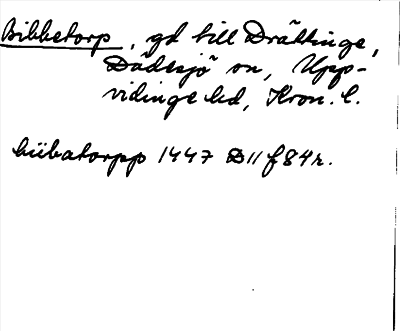 Bibbetorp, gd till Drättinge,
Dädesjö sn, Upp-
vidinge hd, Kron. l.
biibatorpp 1447 D11 f84r.